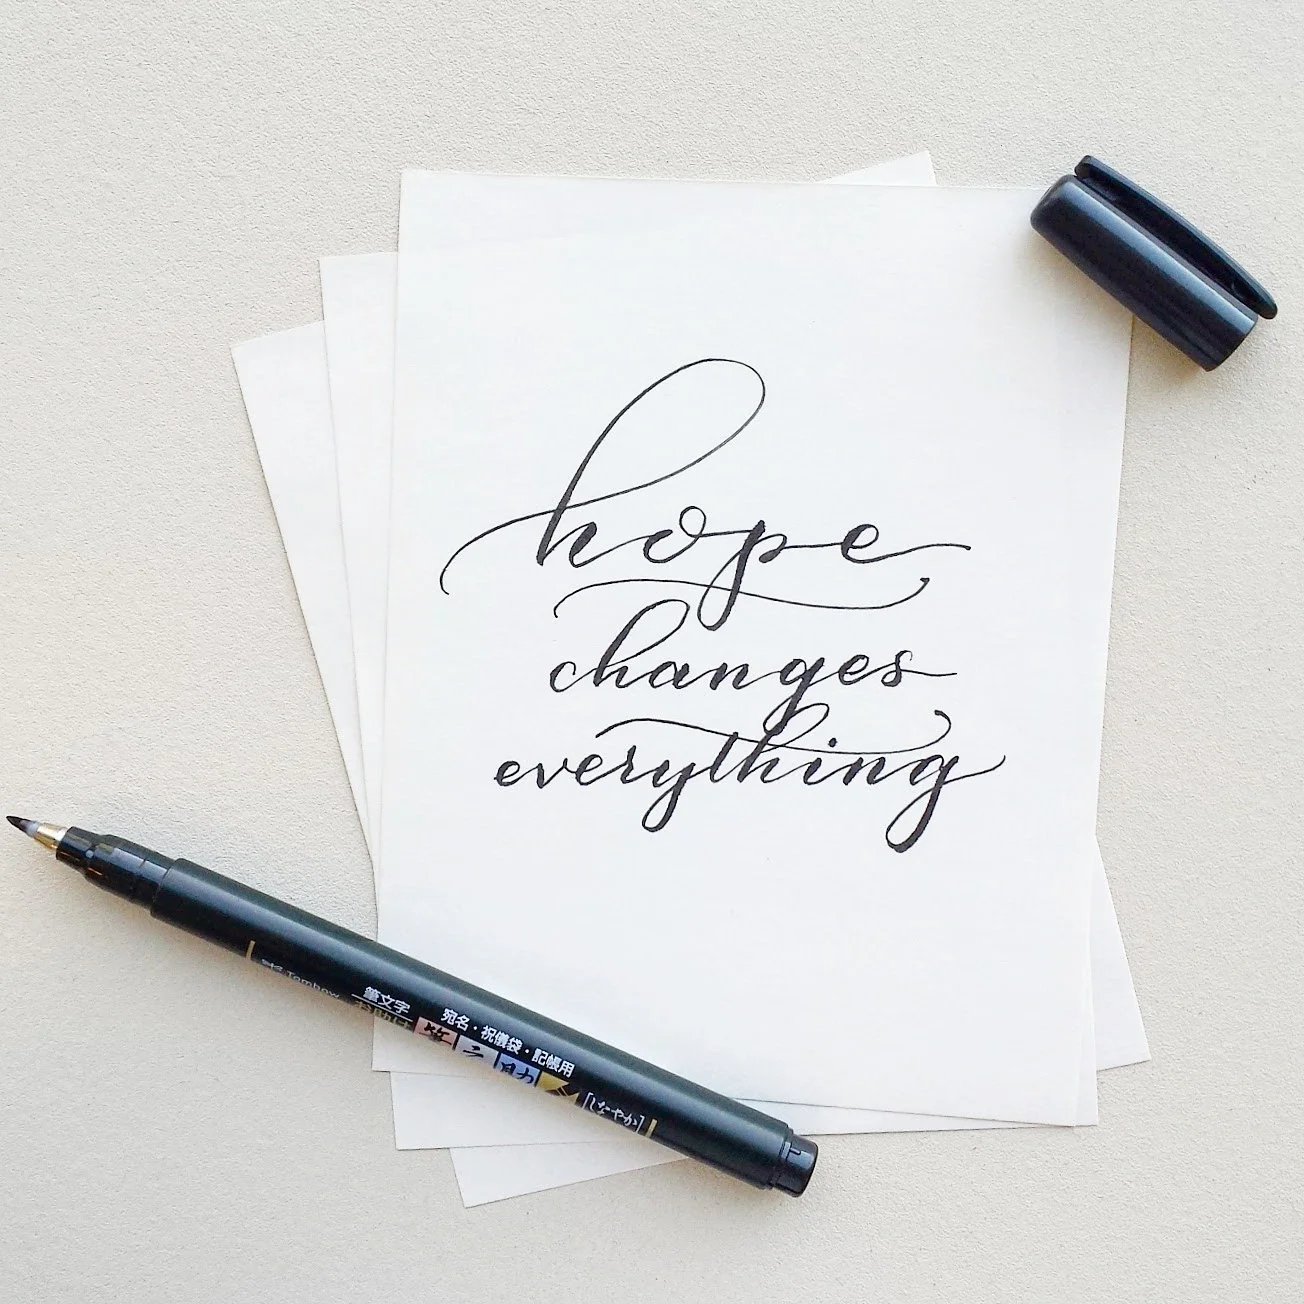 hope
changes
everything
Tombow
筆文字
宛名・祝儀袋・記帳用
筆之助
[しなやか]